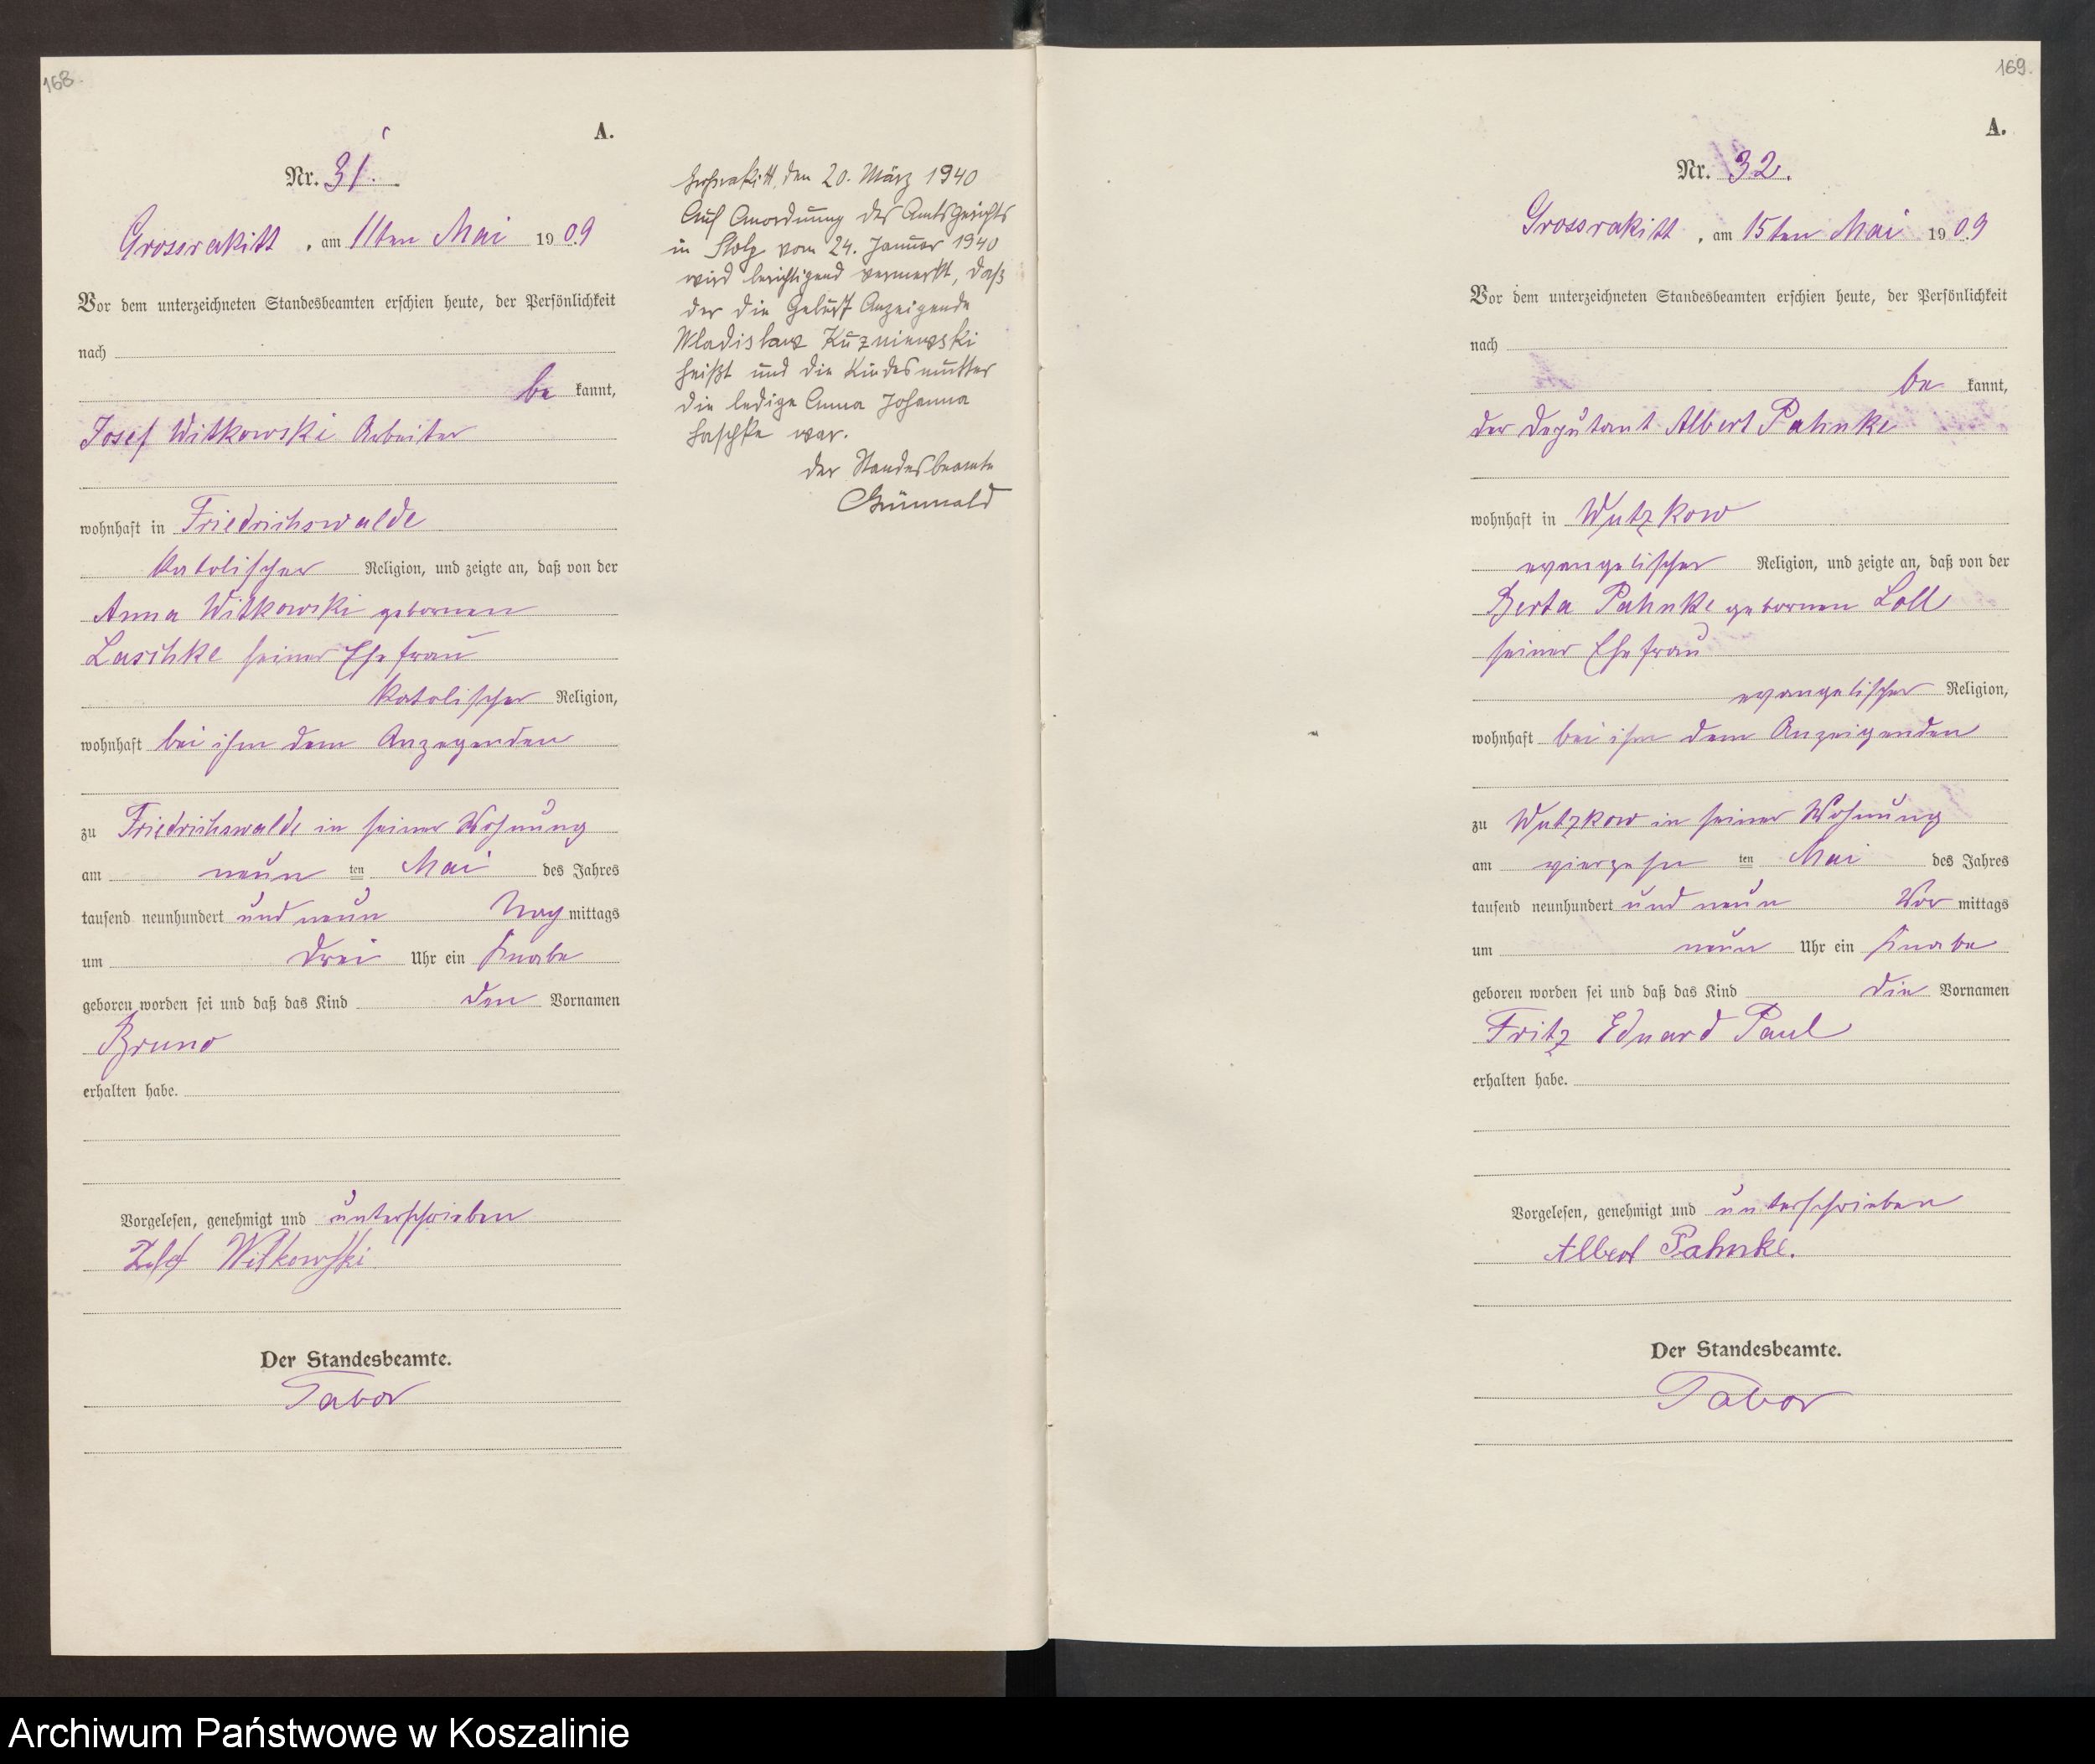 168.
A.
Nr. 31.
Grossrakitt, am 11ten Mai 1909
Vor dem unterzeichneten Standesbeamten erschien heute, der Persönlichkeit
nach
be kannt,
Josef Witkowski Arbeiter
wohnhaft in Friedrichswalde
katolischer Religion, und zeigte an, daß von der
Anna Witkowski gebornen
Laschke seiner Ehefrau
katolischer Religion,
wohnhaft bei ihm dem Anzegenden
zu Friedrichswalde in seiner Wohnung
am neun ten Mai des Jahres
tausend neunhundert und neun Nach mittags
um drei Uhr ein Knabe
geboren worden sei und daß das Kind den Vornamen
Bruno
erhalten habe.
Vorgelesen, genehmigt und unterschrieben
Witkowski
Der Standesbeamte.
Tabor
Großrakitt, den 20. März 1940
Auf Anordnung des Amtsgerichts
in Stolp vom 24. Januar 1940
wird berichtigend vermerkt, daß
der die Geburt Anzeigende
Wladislaus Kuzniewski
heißt und die Kindesmutter
die ledige Anna Johanna
Laschke war.
der Standesbeamte
Grünwald
169.
A.
Nr. 32.
Grossrakitt, am 15ten Mai 1909
Vor dem unterzeichneten Standesbeamten erschien heute, der Persönlichkeit
nach
be kannt,
der Deputant Albert Pahnke
wohnhaft in Wutzkow
evangelischer Religion, und zeigte an, daß von der
Berta Pahnke gebornen Loll
seiner Ehefrau
evangelischer Religion,
wohnhaft bei ihm dem Anzeigenden
zu Wutzkow in seiner Wohnung
am vierzehn ten Mai des Jahres
tausend neunhundert und neun Vor mittags
um neun Uhr ein Knabe
geboren worden sei und daß das Kind die Vornamen
Fritz Eduard Paul
erhalten habe.
Vorgelesen, genehmigt und unterschrieben
Albert Pahnke.
Der Standesbeamte.
Tabor
Archiwum Państwowe w Koszalinie